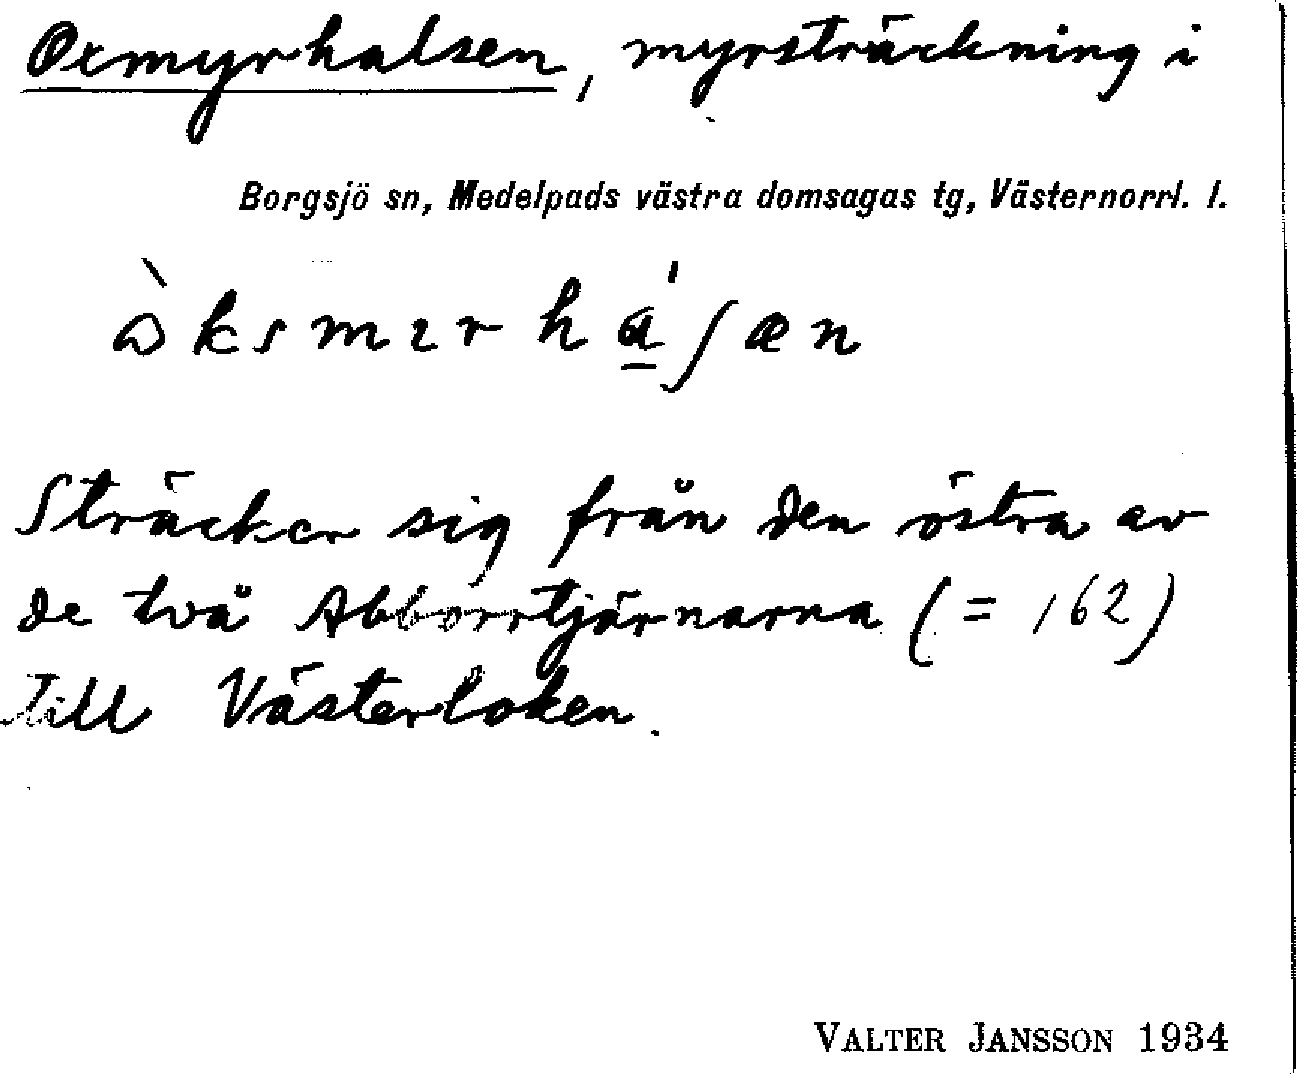 Oxmyrhalsen, myrsträckning i
Borgsjö sn, Medelpads västra domsagas tg, Västernorrl. l.
Sträcker sig från den östra av
de två Abborrtjärnarna (= 162)
till Västerloken.
VALTER JANSSON 1934